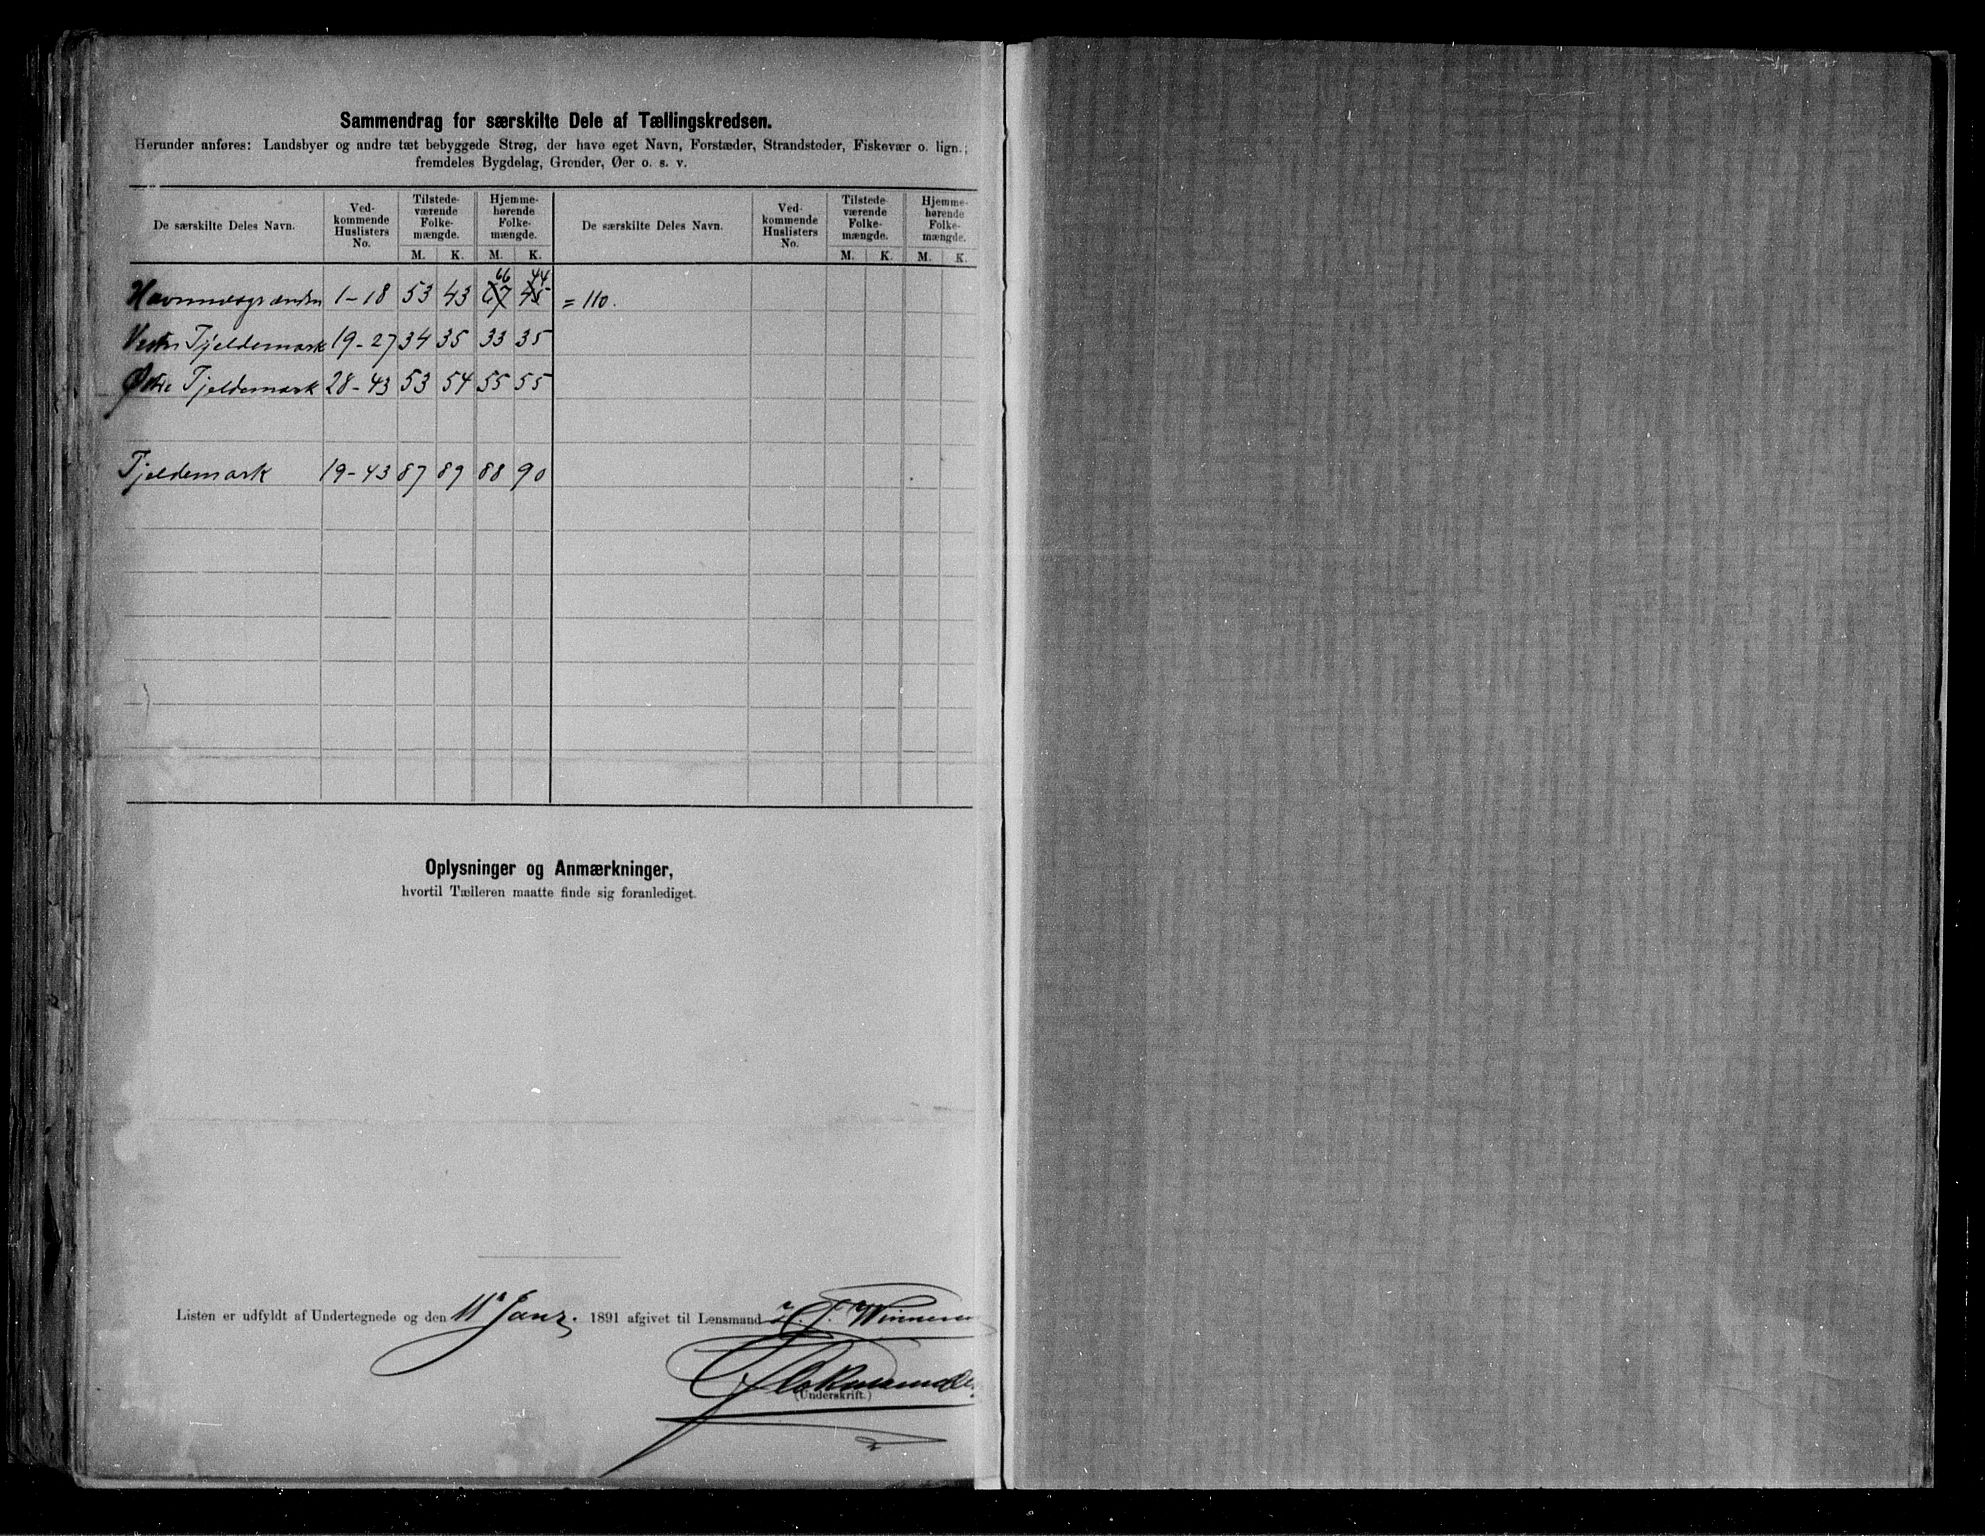 Sammendrag for særskilte Dele af Tællingskredsen.
Herunder anføres: Landsbyer og andre tæt bebyggede Strøg, der have eget Navn, Forstæder, Strandsteder, Fiskevær o. lign.;
fremdeles Bygdelag, Grender, Øer o. s. v.
De særskilte Deles Navn. Ved-kommende Huslisters No. Tilstede-værende Folke-mængde. Hjemme-hørende Folke-mængde. De særskilte Deles Navn. Ved-kommende Huslisters No. Tilstede-værende Folke-mængde. Hjemme-hørende Folke-mængde.
M. K. M. K. M. K. M. K.
66 44
Havnnæsgrænden 1-18 53 43 67 45 = 110.
Vestre Tjeldemark 19-27 34 35 33 35
Østre Tjeldemark 28-43 53 54 55 55
Tjeldemark 19-43 87 89 88 90
Oplysninger og Anmærkninger,
hvortil Tælleren maatte finde sig foranlediget.
Listen er udfyldt af Undertegnede og den 11 Janr. 1891 afgivet til Lensmand
(Underskrift.)